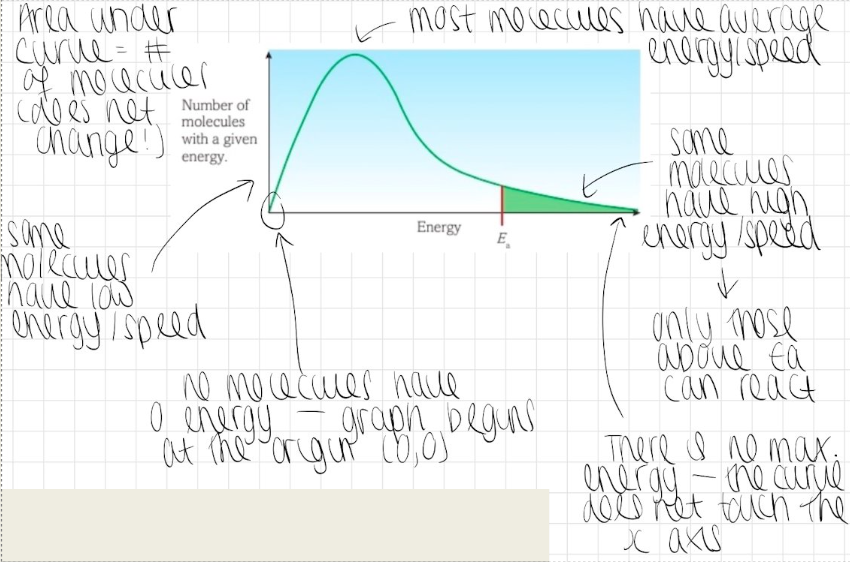 Area under
curve = #
of molecules
(does not
change!)
most molecules have average
energy/speed
Number of
molecules
with a given
energy.
some
molecules
have high
energy/speed
only those
above Ea
can react
Energy
Ea
some
molecules
have low
energy/speed
no molecules have
0 energy — graph begins
at the origin (0,0)
There is no max.
energy — the curve
does not touch the
x axis